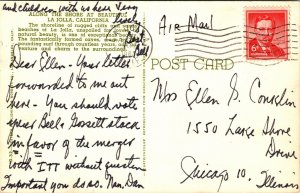 and children with us here. Terry
ALONG THE SHORE AT BEAUTIFUL
LA JOLLA, CALIFORNIA
The shoreline of rugged cliffs and
beaches at La Jolla, unspoiled for
natural beauty, is one of
The fantastically formed caves,
pounding surf through countless years,
texture and charm to the surroundings.
Bill
Dear Ellen - Your letter
forwarded to me out
here - You should vote
your Bell & Gossett stock
in favor of the merger
with ITT without question
Important you do so. Nan, Dan
Air Mail
POST CARD
6¢
Mrs Ellen G. Conklin
1550 Lake Shore
Drive
Chicago 10. Illinois